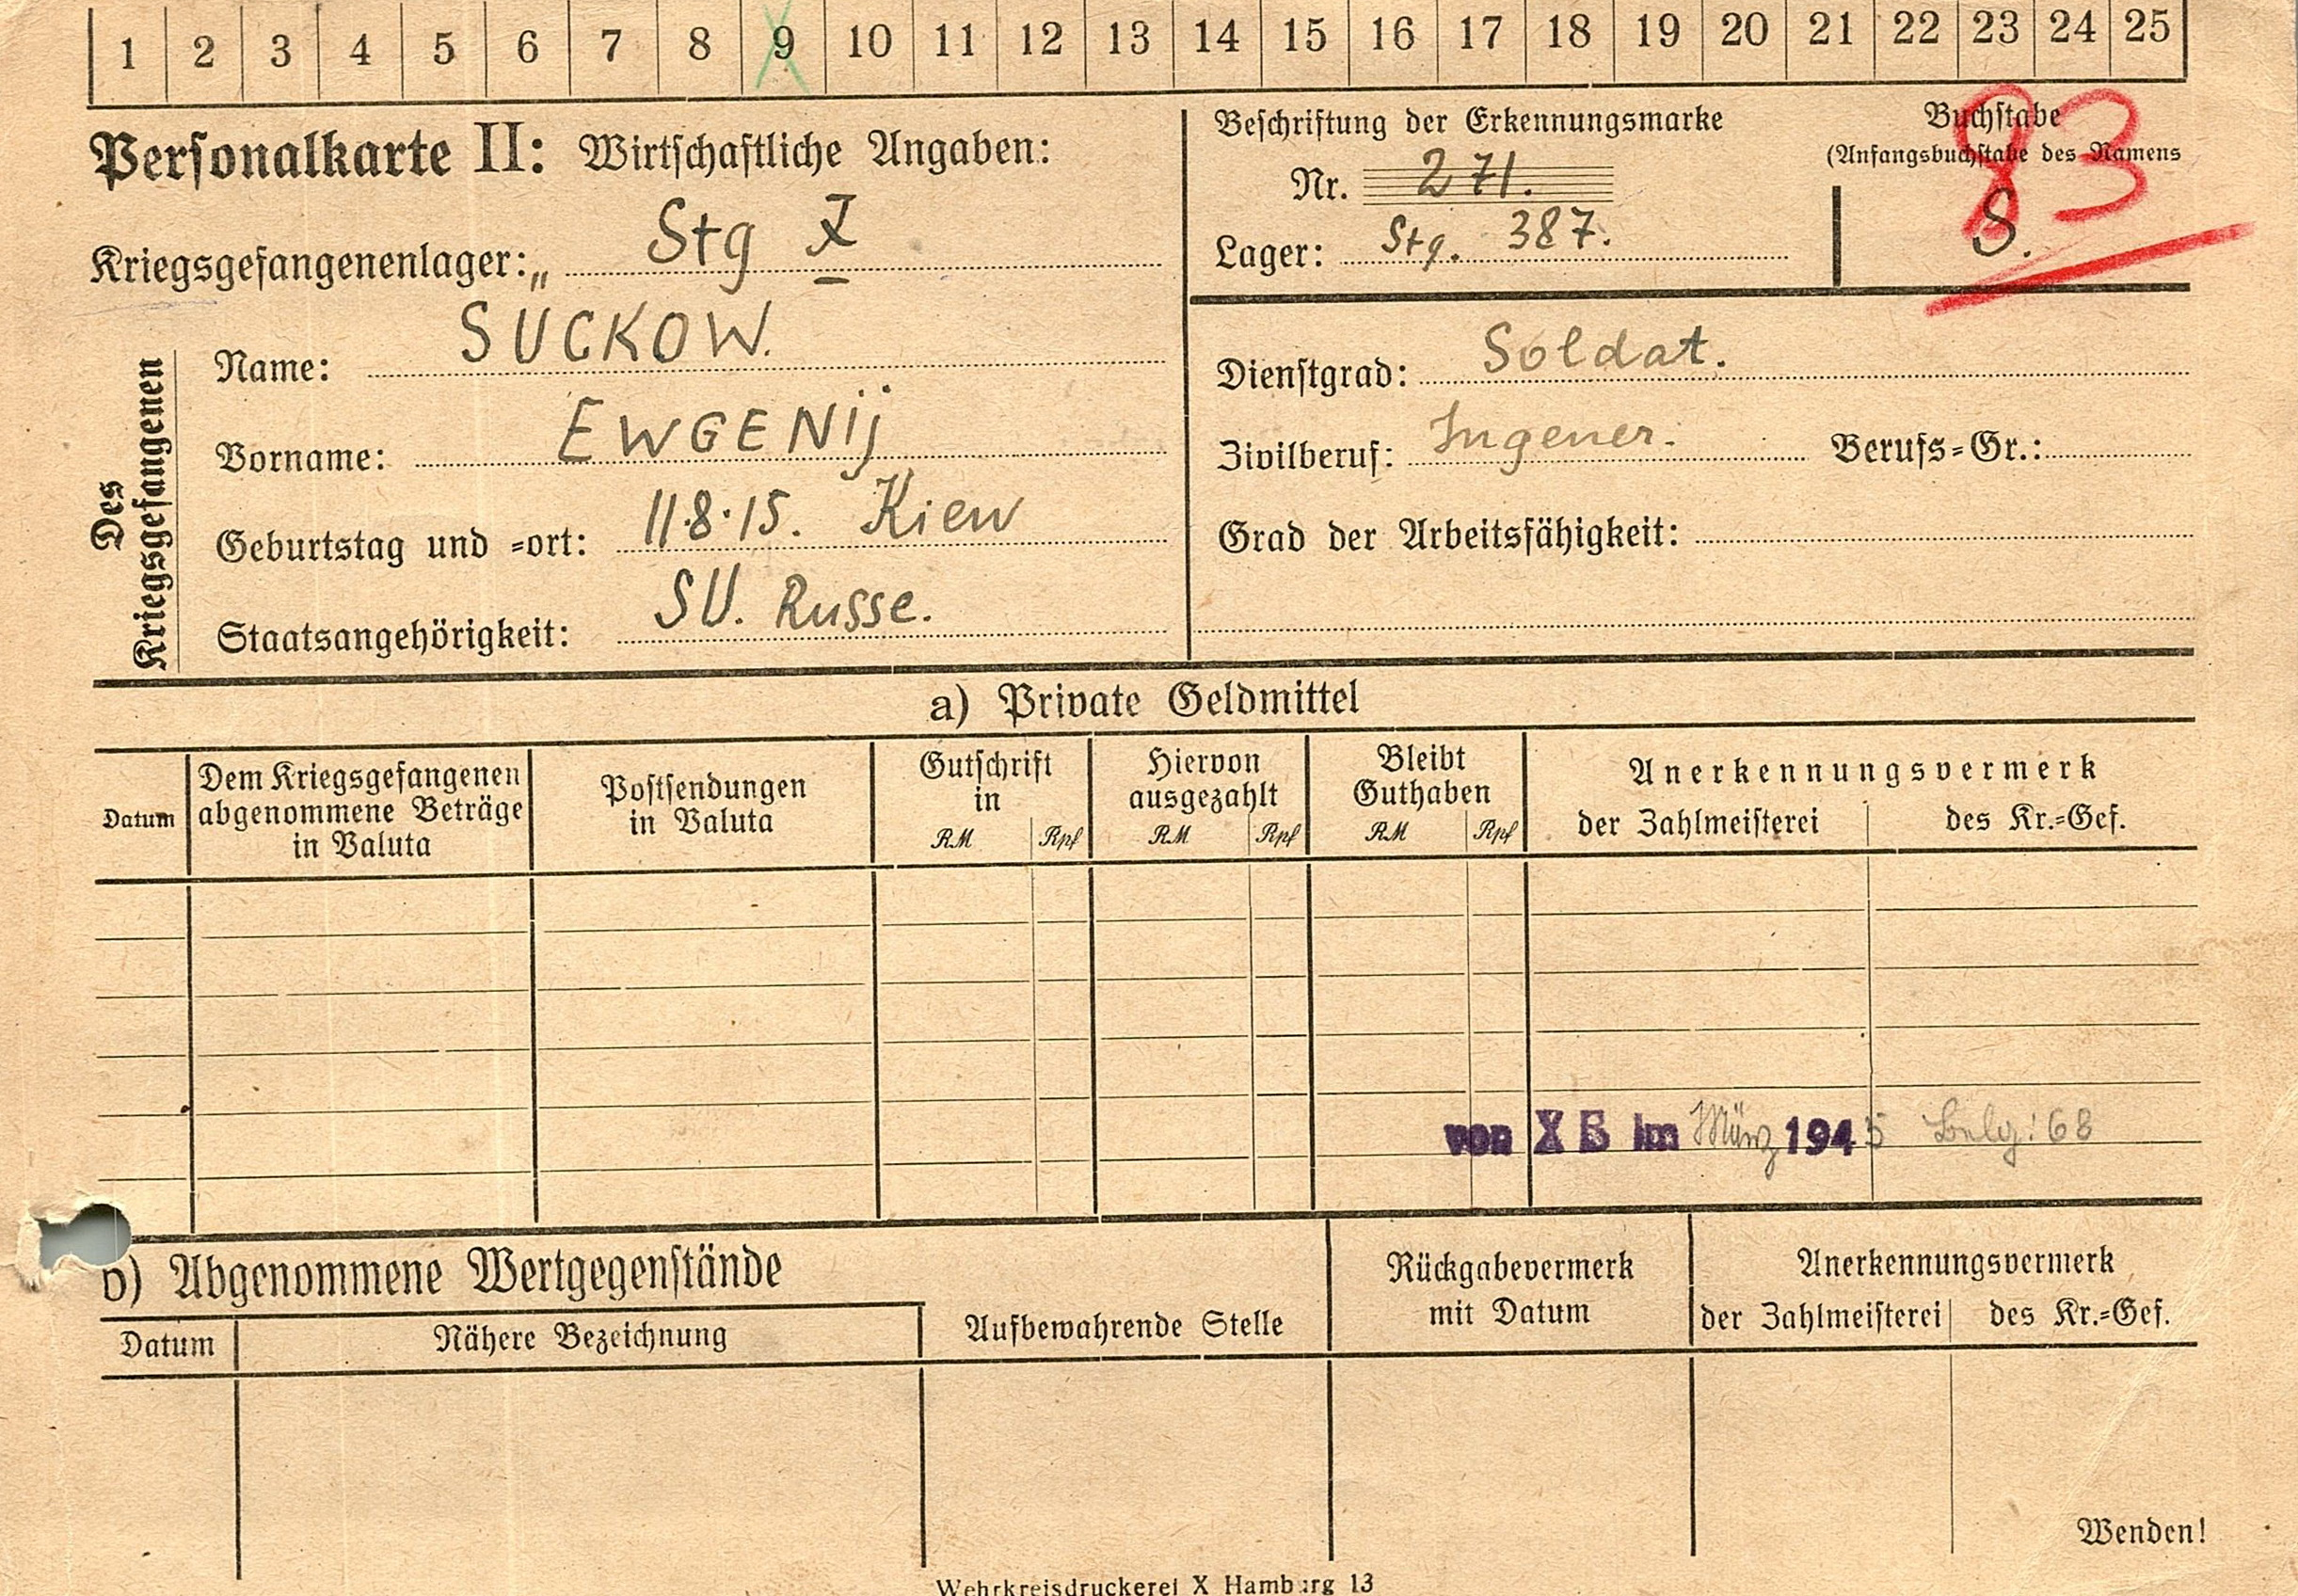 1 2 3 4 5 6 7 8 9 10 11 12 13 14 15 16 17 18 19 20 21 22 23 24 25
Personalkarte II: Wirtschaftliche Angaben:
Kriegsgefangenenlager: „ Stg X
Beschriftung der Erkennungsmarke
Nr. 271.
Lager: Stg. 387.
Buchstabe
(Anfangsbuchstabe des Namens
83
S.
Des
Kriegsgefangenen
Name: SUCKOW.
Vorname: EWGENIj
Geburtstag und =ort: 11.8.15. Kiew
Staatsangehörigkeit: SU. Russe.
Dienstgrad: Soldat.
Zivilberuf: Ingener. Berufs=Gr.:
Grad der Arbeitsfähigkeit:
a) Private Geldmittel
Datum
Dem Kriegsgefangenen
abgenommene Beträge
in Valuta
Postsendungen
in Valuta
Gutschrift
in
RM Rpf
Hiervon
ausgezahlt
RM Rpf
Bleibt
Guthaben
RM Rpf
Anerkennungsvermerk
der Zahlmeisterei des Kr.=Gef.
von X B im März 1945 : 68
b) Abgenommene Wertgegenstände
Datum Nähere Bezeichnung
Aufbewahrende Stelle
Rückgabevermerk
mit Datum
Anerkennungsvermerk
der Zahlmeisterei des Kr.=Gef.
Wenden!
Wehrkreisdruckerei X Hamburg 13